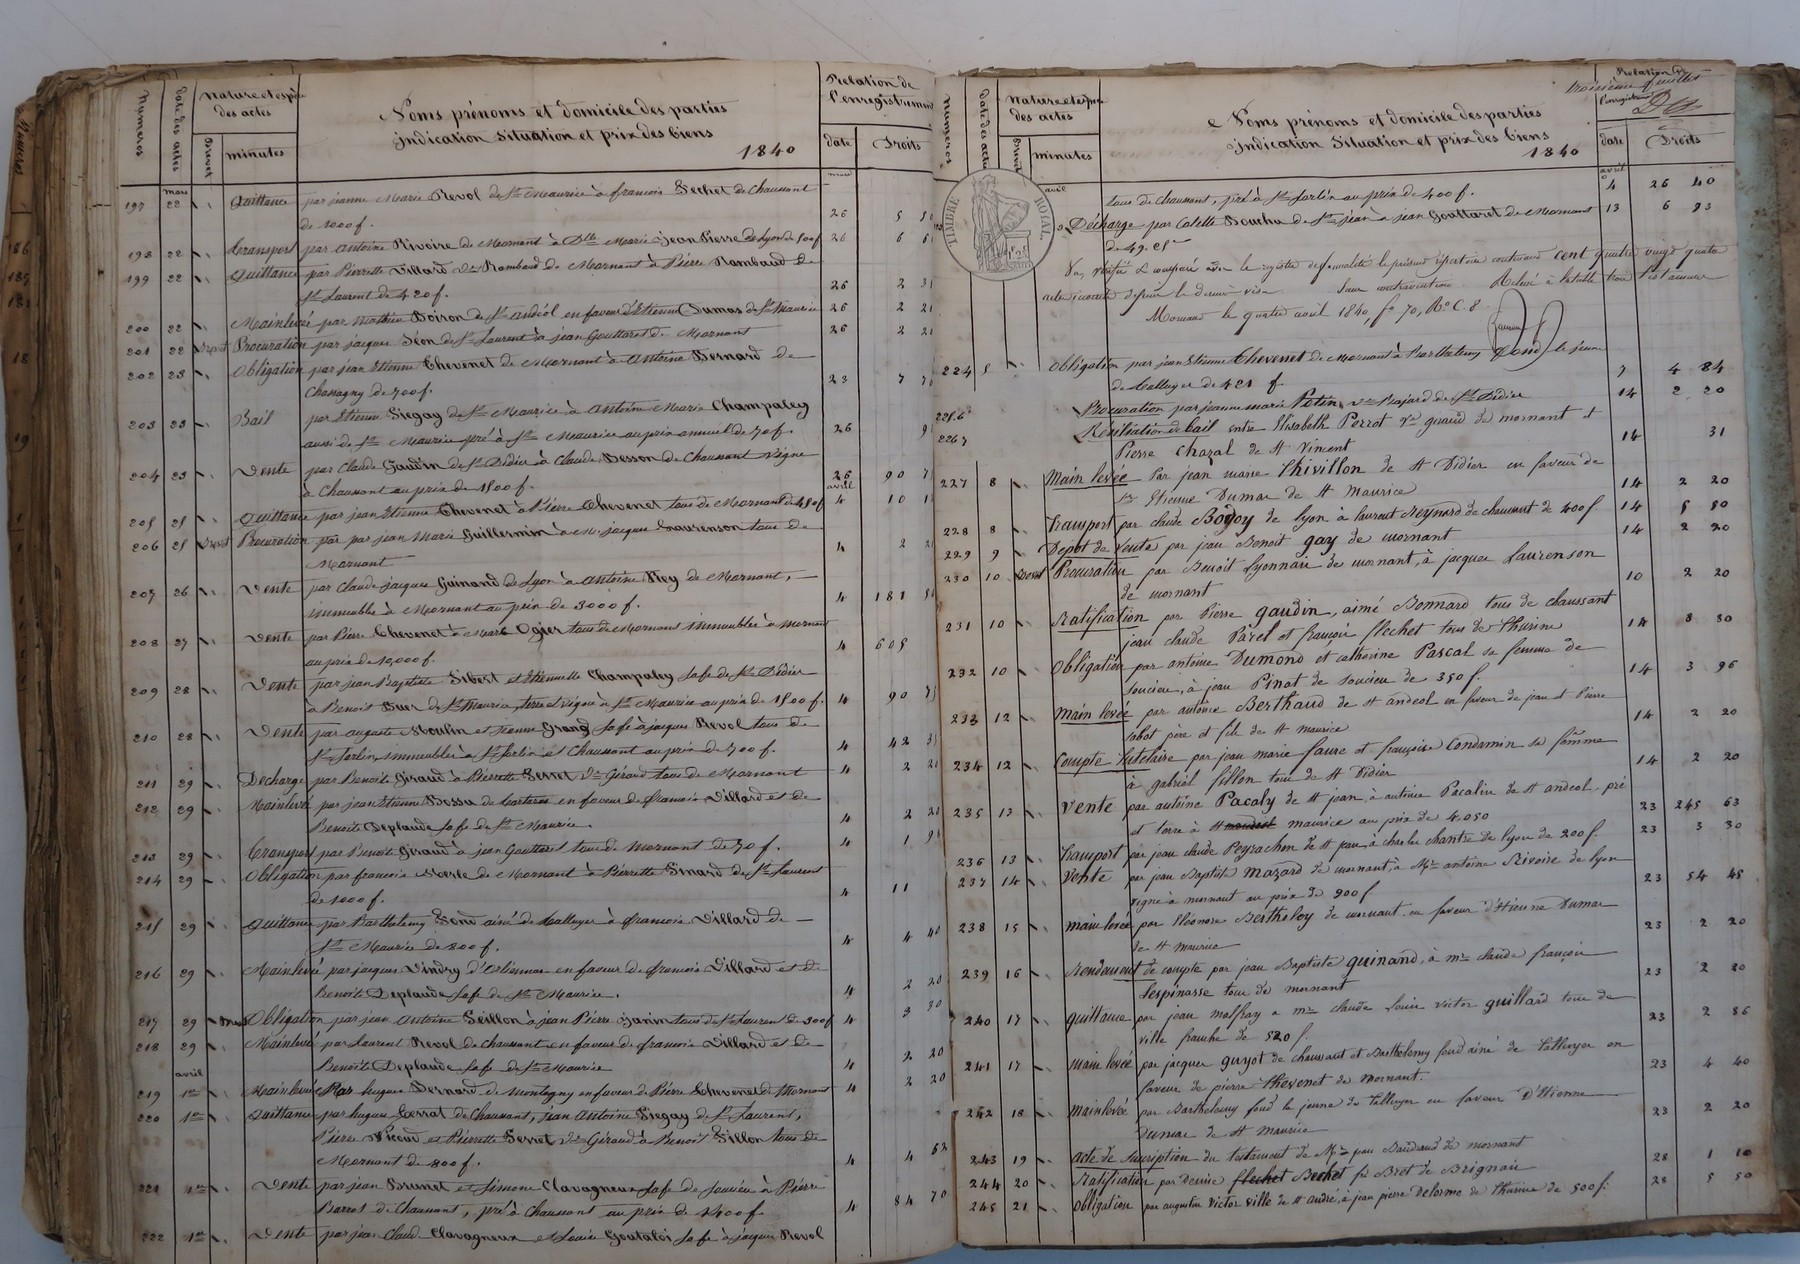 Numéros
date des actes
Nature et espèce des actes
Brevet
minutes
Noms prénoms et domicile des parties
indication Situation et prix des biens
1840
Relation de l'enregistrement
date
Droits
mars
197 22 Quittance par jeanne Marie Revol de St Maurice à françois Fléchet de Chaussant
de 1000 f. 26 5 50
198 22 Transport par Antoine Rivoire de Mornant à Dlle Marie Jean Pierre de Lyon de 500 f 26 6
199 22 Quittance par Pierrette Villard Ve Rambaud de Mornant à Pierre Rambaud de
St Laurent de 420 f. 26 2
200 22 Mainlevée par Mathieu Boiron de St Andéol en faveur d'Etienne Dumas de St Maurice 26 2
201 22 Brevet Procuration par jacques Iéon de St Laurent à jean Gouttaret de Mornant 26 2
202 23 Obligation par jean Etienne Thevenet de Mornant à Antoine Bernard de
Chassagny de 700 f. 23 7
203 23 Bail par Etienne Piegay de St Maurice à Antoine Marie Champaley
aussi de St Maurice pré à St Maurice au prix annuel de 70 f. 26
204 23 Vente par Claude Gaudin de St Didier à Claude Besson de Chaussant vigne
à Chaussant au prix de 1500 f. 26 90
avril
205 25 Quittance par jean Etienne Thevenet à Pierre Thevenet tous de Mornant de 450 f 4 10
206 25 Brevet Procuration par par jean Marie Guillermin à M. jacques Laurenson tous de
Mornant 4 2
207 26 Vente par Claude jacques Guinand de Lyon à Antoine Rey de Mornant,
immeubles à Mornant au prix de 3000 f. 4 181
208 27 Vente par Pierre Thevenet à Marc Ogier tous de Mornant immeubles à Mornant
au prix de 10,000 f. 4 605
209 28 Vente par jean Baptiste Sibert et Etiennette Champaley sa fe de St Didier
à Benoit Buer de St Maurice, terre et vigne à St Maurice au prix de 1500 f. 4 90
210 28 Vente par auguste Moulin et jeanne Grang sa fe à jacques Revol tous de
St Sorlin immeubles à St Sorlin et Chaussant au prix de 700 f. 4 42
211 29 Décharge par Benoite Giraud à Pierrette Serret Ve Géraud tous de Mornant 4 2
212 29 Mainlevée par jean Etienne Bossu de Tartaras en faveur de françois Villard et de
Benoite Deplaude sa fe de St Maurice. 4 2
213 29 Transport par Benoit Giraud à jean Gouttaret tous de Mornant de 70 f. 4 1
214 29 Obligation par françois Merle de Mornant à Pierrette Pinard de St Laurent
de 1000 f. 4 11
215 29 Quittance par Barthelemy Fond ainé de Talluyer à françois Villard de
St Maurice de 800 f. 4 4 40
216 29 Mainlevée par jacques Vindry d'Orliennas en faveur de françois Villard et de
Benoite Deplaude sa fe de St Maurice. 4 2 20
217 29 Obligation par jean Antoine Seillon à jean Pierre Janin tous de St Laurent de 300 f 4 3 30
218 29 Mainlevée par Laurent Revol de Chaussant en faveur de françois Villard et de
Benoite Deplaude sa fe de St Maurice 4 2 20
avril
219 1er Mainlevée Par hugues Bernard de Montagny en faveur de Pierre Thevenet de Mornant 4 2 20
220 1er Quittance par hugues Ferrat de Chaussant, jean Antoine Piegay de St Laurent,
Pierre Picoud et Pierrette Serret Ve Géraud à Benoit Fillon tous de
Mornant de 800 f. 4 4
221 1er Vente par jean Brunet et Simone Clavagneux sa fe de Soucieu à Pierre
Barret de Chaussant, pré à Chaussant au prix de 1400 f. 4 84 70
222 1er Vente par jean Claud Clavagneux et Louise Goutaloi sa fe à jacques Revol
Numéros
date des actes
Nature et espèce des actes
Brevet
minutes
Noms prénoms et domicile des parties
indication Situation et prix des biens
1840
troisième feuillet
Relation de l'enregistrement
date
Droits
TIMBRE ROYAL
avril
tous de Chaussant, pré à St Sorlin au prix de 400 f. 4 26 40
Décharge par Colette Bouchu de St jean à jean Gouttaret de Mornant 13 6 93
de 49.
Vu, vérifié et comparé avec le registre de formalité le présent répertoire contenant cent quatre vingt quatre
actes inscrits depuis le dernier visa sans contravention
Mornant le quatre avril 1840, fo 70, Ro C. 8
224 5 Obligation par jean Etienne Thevenet de Mornant à Barthelemy Fond le jeune
de Talluyer de 421 f. 7 4 84
225 6 Procuration par jeanne marie Potin ve Bajard de St Didier 14 2 20
226 7 Résiliation de bail entre Elisabeth Perrot Ve giraud de mornant et
Pierre Chazal de St Vincent 14 31
227 8 Main levée Par jean marie Thivillon de St Didier en faveur de
Sr Etienne Dumas de St Maurice 14 2 20
228 8 Transport par claude Bodoy de lyon à laurent Reynard de chaussant de 400 f. 14 5 50
229 9 Dépot de vente par jean Benoit gay de mornant 14 2 20
230 10 Brevet Procuration par Benoit Lyonnais de mornant, à jacques Laurenson
de mornant 10 2 20
231 10 Ratification par Pierre gaudin, aimé Bonnard tous de chaussant
jean claude Parel et françois flechet tous de Thurins 14 8 80
232 10 Obligation par antoine Dumond et catherine Pascal sa femme de
Soucieu, à jean Pinat de Soucieu de 350 f. 14 3 96
233 12 Main levée par antoine Berthaud de St andeol en faveur de jean et Pierre
Sabot père et fils de St Maurice 14 2 20
234 12 Compte tutélaire par jean marie faure et françoise Condamin sa femme
à gabriel fillon tous de St Didier 14 2 20
235 13 Vente par antoine Pacaly de St jean à antoine Pacalin de St andeol. pré
et terre à St maurice au prix de 4,050 23 245 63
236 13 Transport par jean claude Peyrachon de St jean à charles chantre de lyon de 200 f. 23 3 30
237 14 Vente par jean Baptiste Mazard de mornant, à Mr antoine Rivoire de lyon
vigne à mornant au prix de 900 f 23 54 45
238 15 main levée par Eléonore Bertheloy de mornant en faveur d'Etienne Dumas
de St Maurice 23 2 20
239 16 Rendement de compte par jean Baptiste guinand, à me claude françois
Lespinasse tous de mornant 23 2 20
240 17 quittance par jean malfray à me claude louis victor guillard tous de
ville franche de 520 f. 23 2 86
241 17 Main levée par jacques guyot de chaussant et Barthelemy fond ainé de Talluyer en
faveur de pierre Thevenet de Mornant. 23 4 40
242 18 Mainlevée par Barthelemy fond le jeune de Talluyer en faveur D'Etienne
Dumas de St Maurice 23 2 20
243 19 acte de suscription du testament de Mr jean Baudrand de mornant 28 1 10
244 20 Ratification par Denise flechet Bechet fe Bret de Brignais 28 5 50
245 21 Obligation par augustin victor ville de St andré, à jean pierre Delorme de Thurins de 500 f.